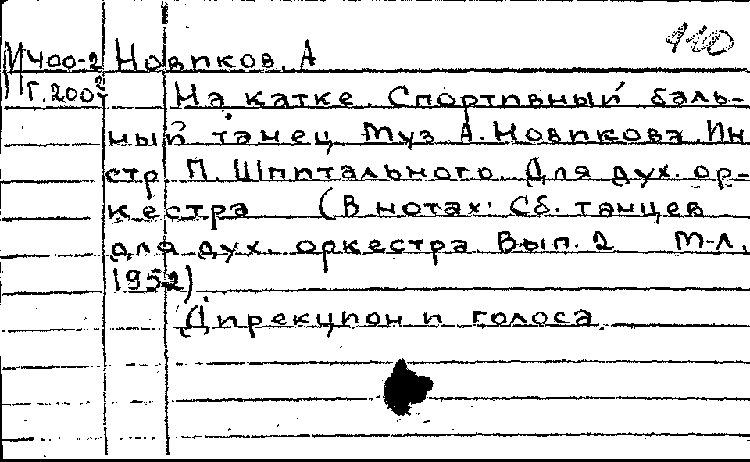 110
М400-2 Новиков, А
Г.200
На катке. Спортивный баль-
ный танец Муз А. Новикова Ин
стр П. Шпитального. Для дух. ор-
кестра (В нотах: Сб. танцев
для дух. оркестра Вып. 2 М-Л,
1952)
Дирекцион и голоса